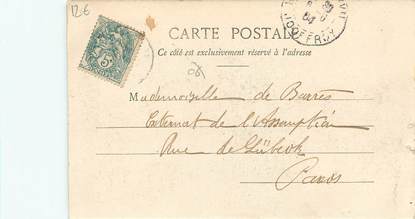 12-6
CARTE POSTALE
Ce côté est exclusivement réservé à l'adresse
JOUFFROY
04
5c
Mademoiselle de Barrès
Externat de l'Assomption
Rue de Lübeck
Paris